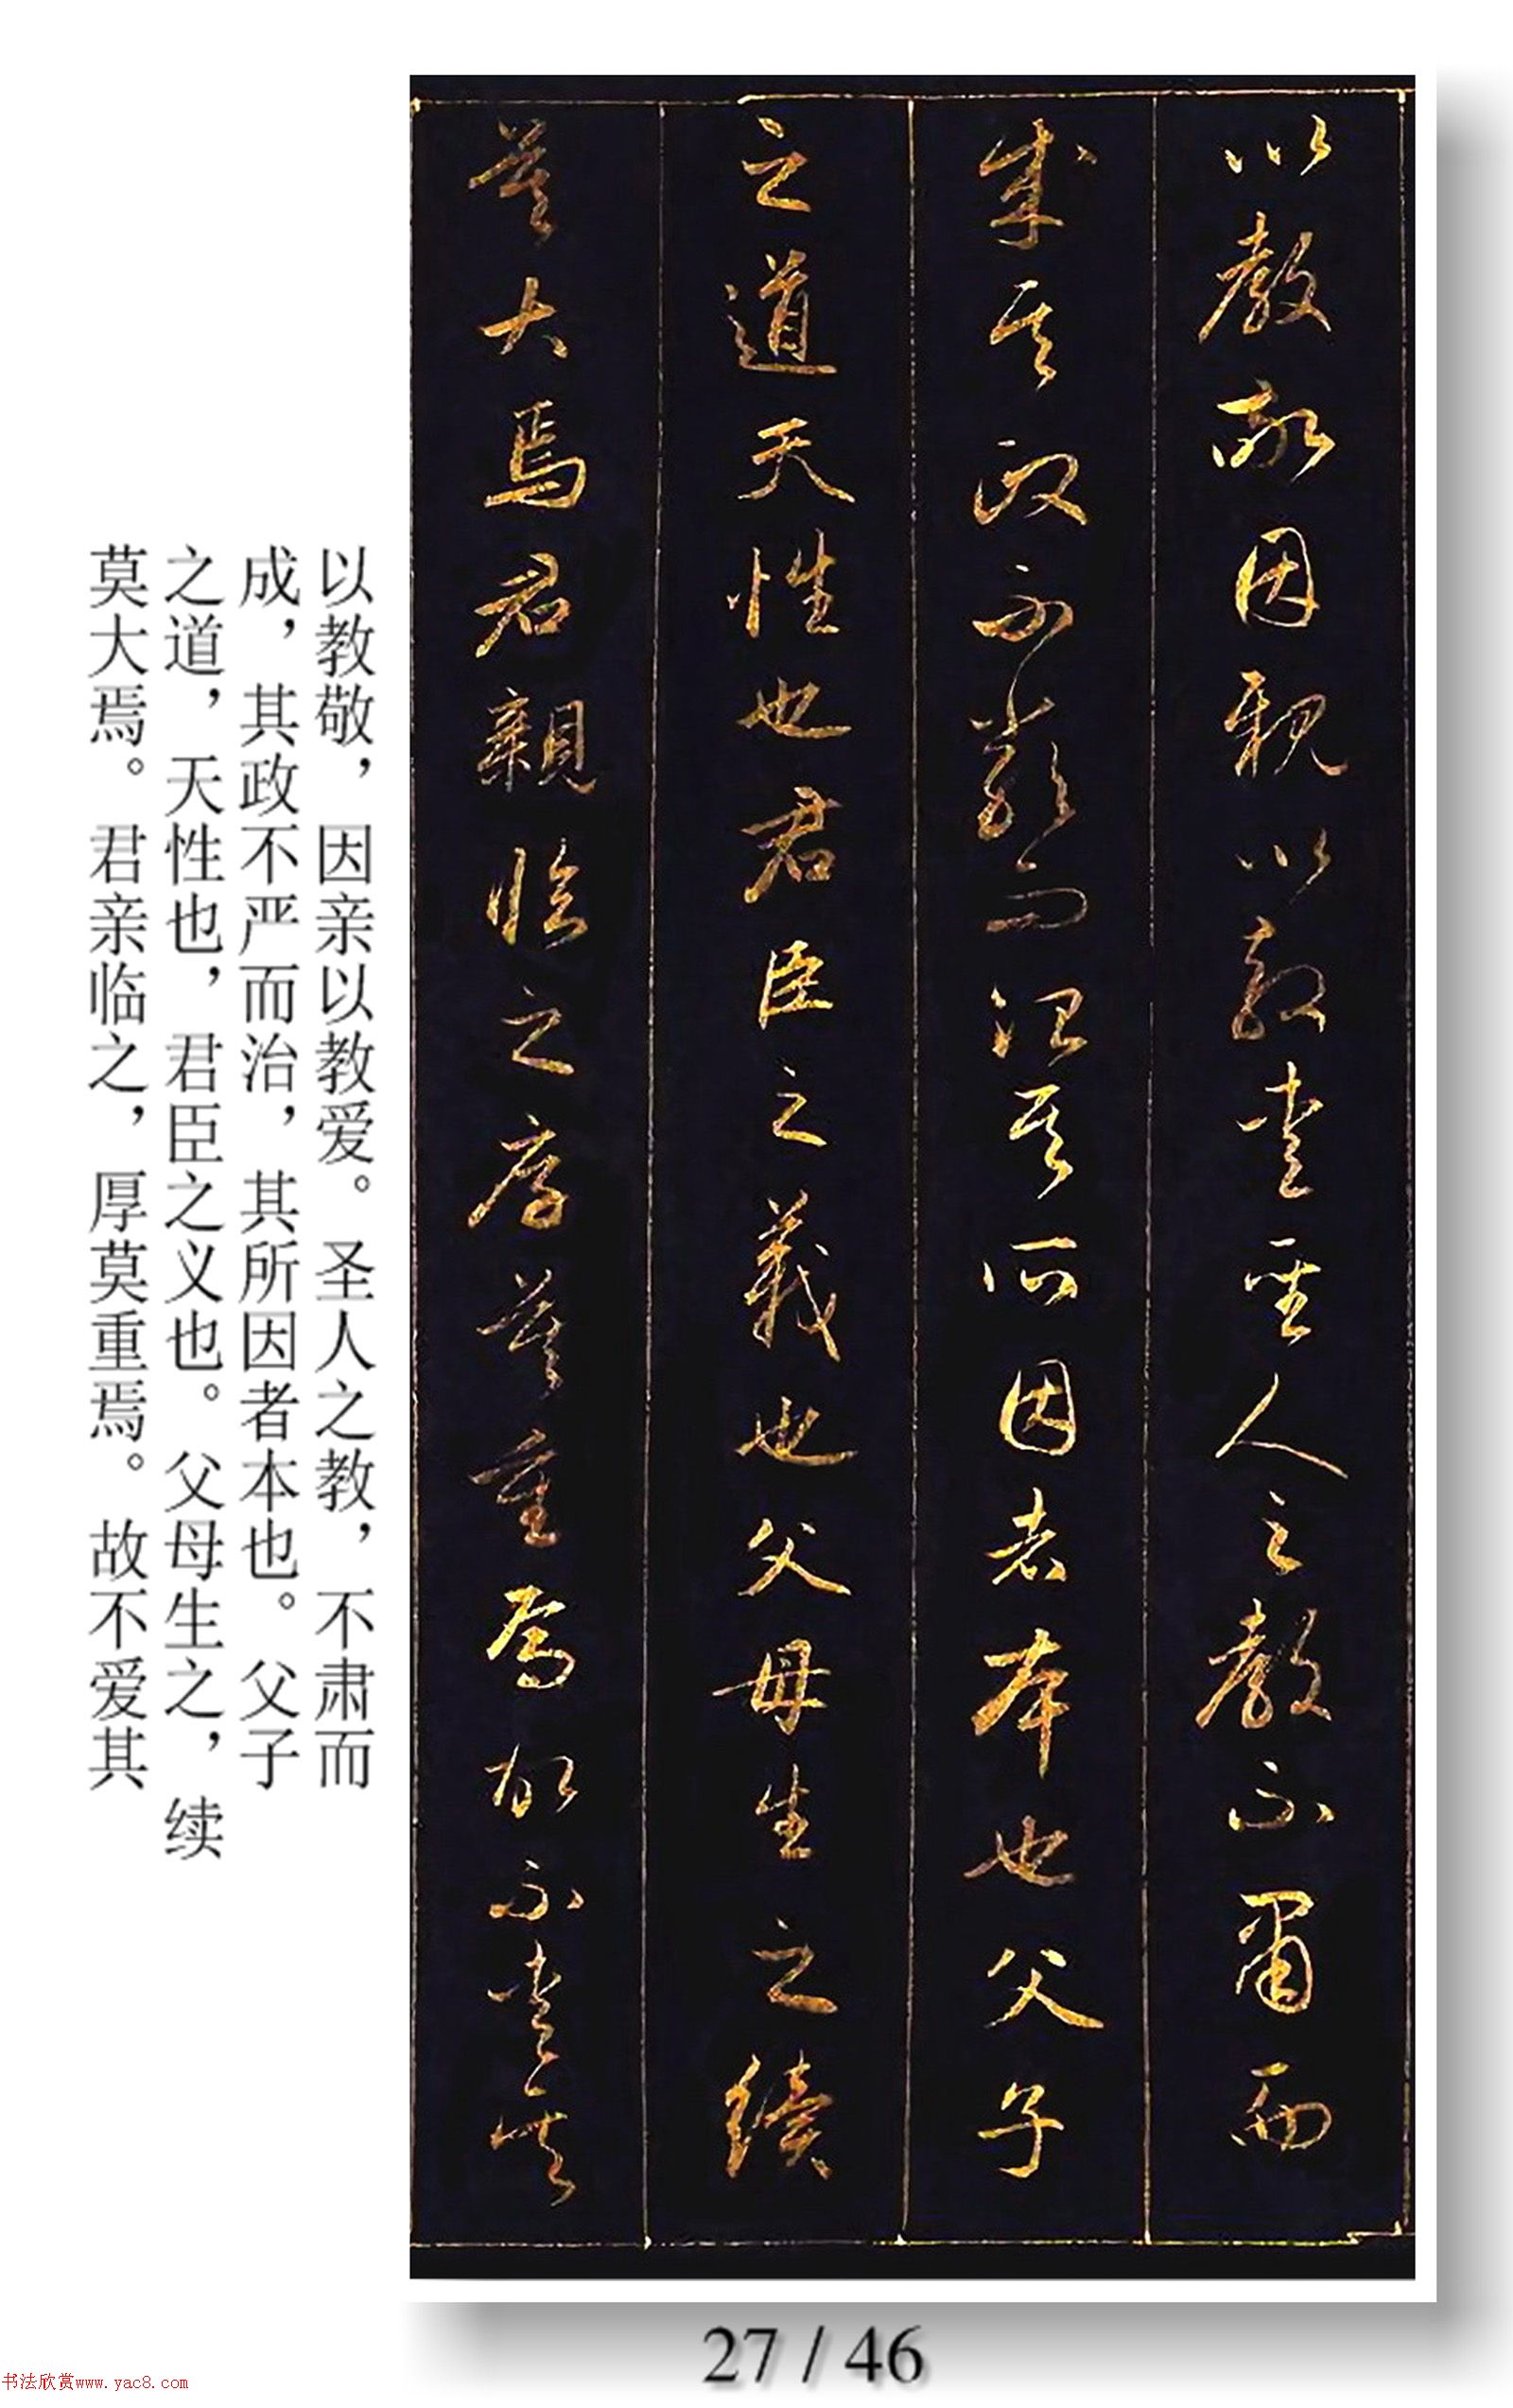 以教敬因親以教愛聖人之教不肅而
成其政不嚴而治其所因者本也父子
之道天性也君臣之義也父母生之續
莫大焉君親臨之厚莫重焉故不愛其
以教敬，因亲以教爱。圣人之教，不肃而
成，其政不严而治，其所因者本也。父子
之道，天性也，君臣之义也。父母生之，续
莫大焉。君亲临之，厚莫重焉。故不爱其
27 / 46
书法欣赏www.yac8.com